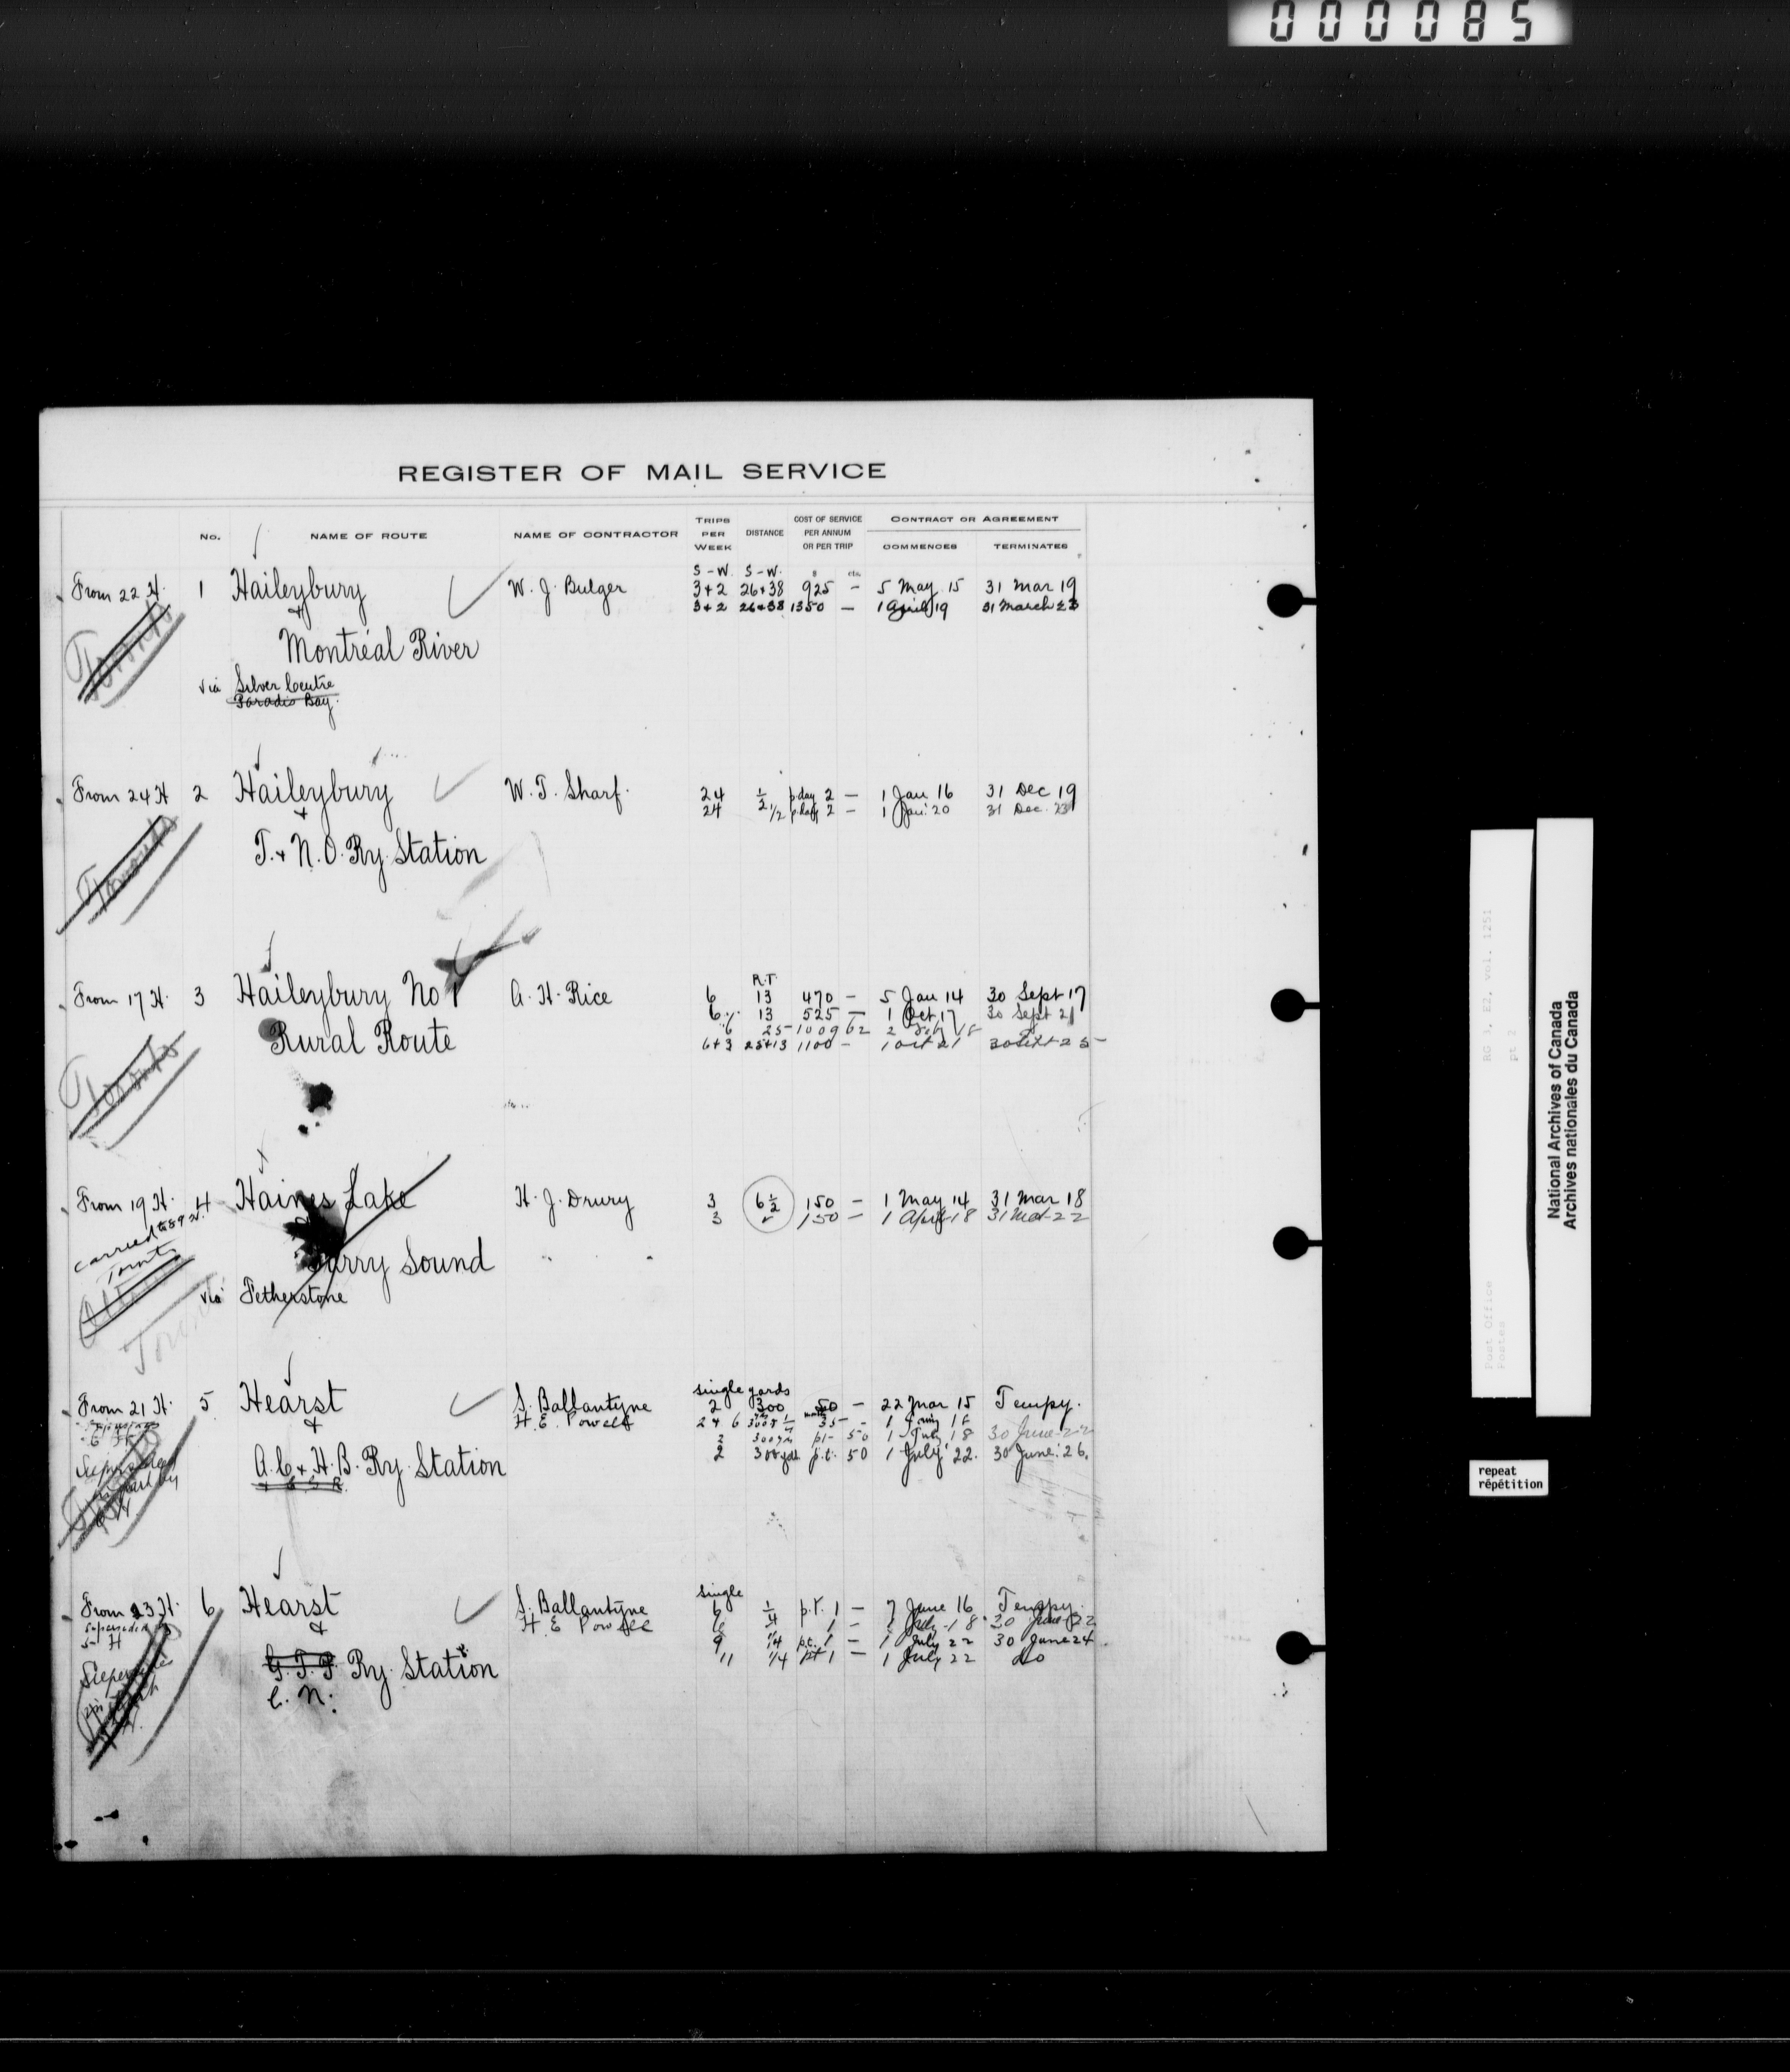 000085
REGISTER OF MAIL SERVICE
No. NAME OF ROUTE NAME OF CONTRACTOR TRIPS PER WEEK DISTANCE COST OF SERVICE PER ANNUM OR PER TRIP CONTRACT OR AGREEMENT COMMENCES TERMINATES
S-W. S-W. $ cts.
From 22 H. 1 Haileybury W. J. Bulger 3+2 26+38 925 - 5 May 15 31 Mar 19
& 3+2 26+38 1350 - 1 April 19 31 March 23
Toronto
Montreal River
via Silver Centre
Paradis Bay.
From 24 H 2 Haileybury W. T. Sharf. 24 1/2 p day 2 - 1 Jan 16 31 Dec 19
& 24 1/2 p. day 2 - 1 Jan. 20 31 Dec. 23
T. & N. O. Ry. Station
Toronto
R.T.
From 17 H. 3 Haileybury No 1 A. H. Rice 6 13 470 - 5 Jan 14 30 Sept 17
6 13 525 - 1 Oct 17 30 Sept 21
Rural Route 6 25 1009 62 2 18
6+3 25+13 1100 - 1 Oct 21 30 Sept 25
Toronto
From 19 H. 4 Haines Lake H. J. Drury 3 6 1/2 150 - 1 May 14 31 Mar 18
carried to 89 3 150 - 1 April 18 31 Mar 22
Parry Sound
via Fetherstone
Toronto
single yards
From 21 H. 5 Hearst S. Ballantyne 2 300 50 - 22 Mar 15 Tempy.
& H. E. Powell 24 6 35 - 1 18
2 300 pt 50 1 July 18 30 June 22
A. C. & H. B. Ry. Station 2 300 yds p.t. 50 1 July 22. 30 June 26.
Superseded
single
From 23 H. 6 Hearst S. Ballantyne 6 1/4 p.t. 1 - 7 June 16 Tempy.
superseded & H. E. Powell 6 1/4 1 - 1 July 18 30 June 22
5 H 9 1/4 p.t. 1 - 1 July 22 30 June 24
G. T. P. Ry. Station 11 1/4 pt 1 - 1 July 22 do
C. N.
RG 3, E2, vol. 1251
pt 2
Post Office
Postes
National Archives of Canada
Archives nationales du Canada
repeat
répétition